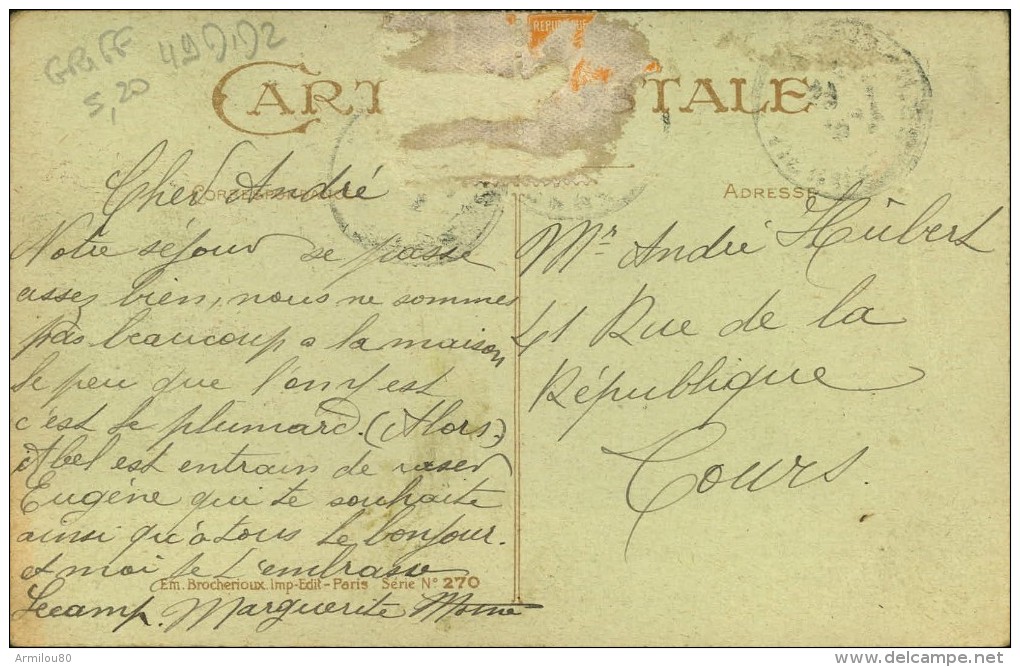 GRIFF 49
5,20
RÉPUBLIQUE
CART STALE
CORRESPONDANCE
ADRESSE
Cher André
Notre séjour se passe
assez bien, nous ne sommes
pas beaucoup a la maison
le peu que l'on y est
c'est le plumard. (Alors)
Abel est entrain de raser
Eugène qui te souhaite
ainsi qu'à tous le bonjour.
et moi je t'embrasse
Lecamp. Marguerite
Em. Brocherioux. Imp-Edit-Paris Série N° 270
Mr André Hubert
41 Rue de la
République
Tours.
Armilou80
www.delcampe.net